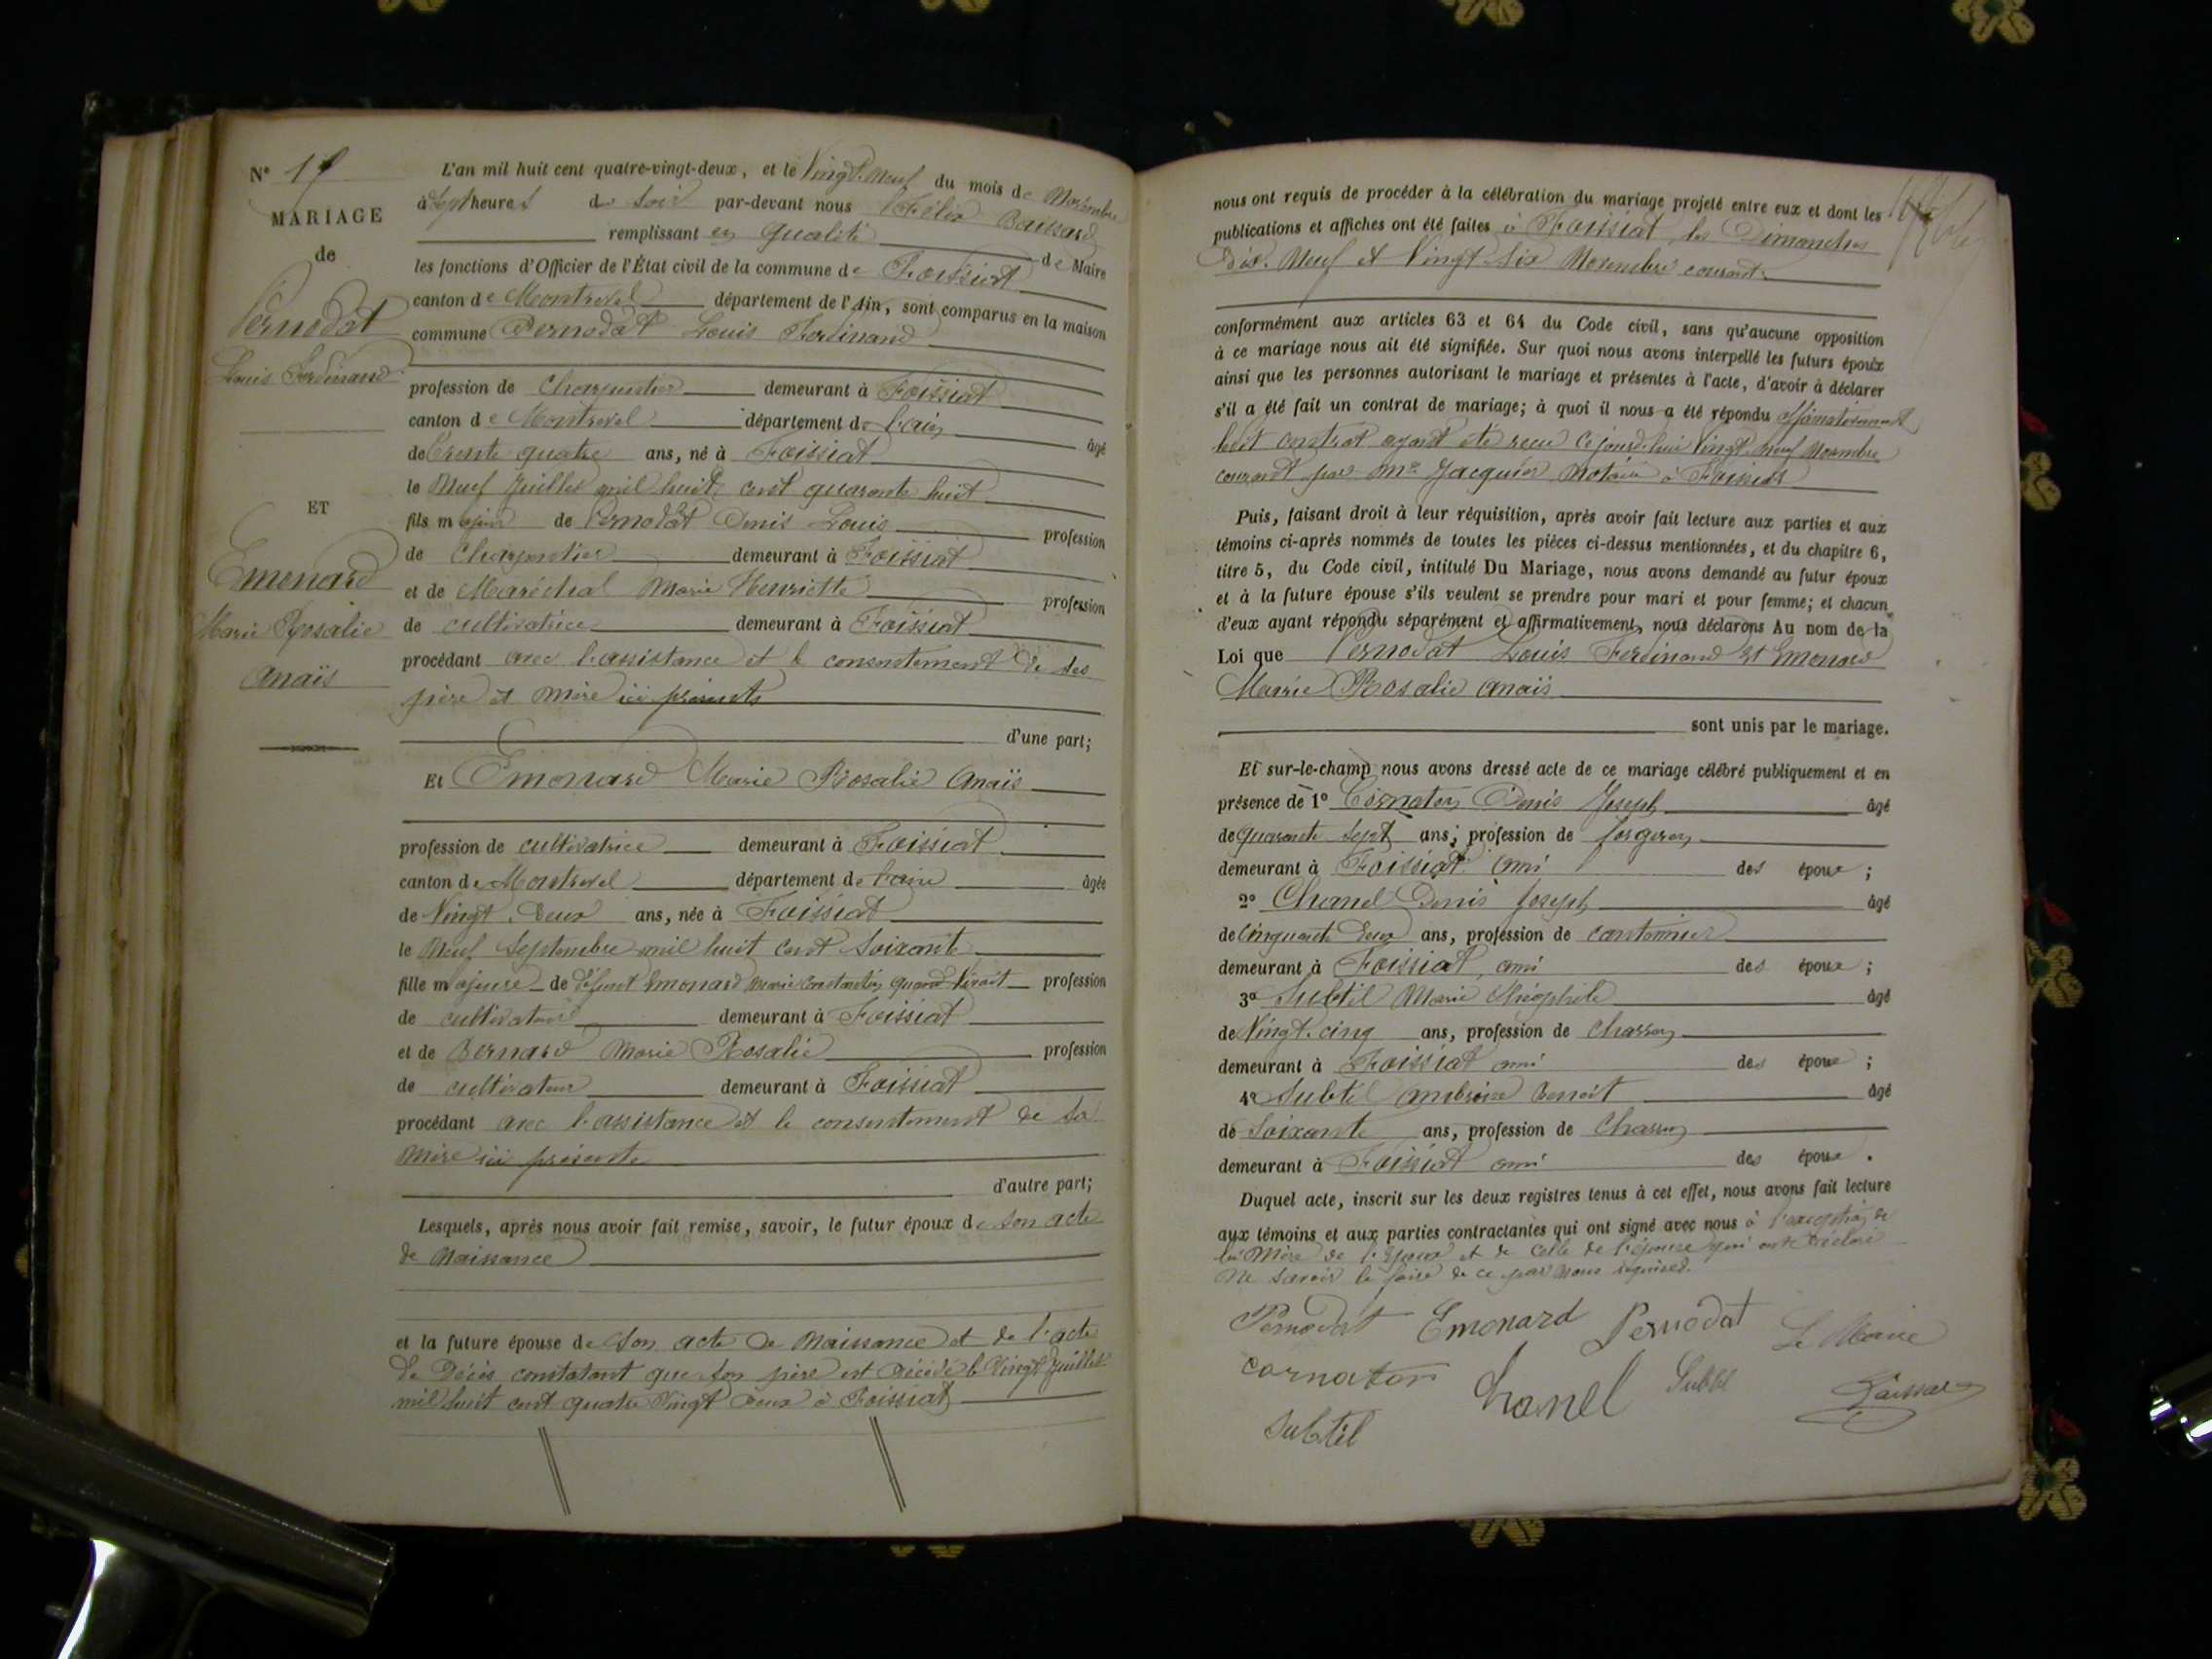 N° 17
MARIAGE
de
Pernodat
Louis Ferdinand
ET
Emenard
Marie Rosalie
Anaïs
L'an mil huit cent quatre-vingt-deux, et le Vingt-Neuf du mois de Novembre
à Sept heures du Soir par-devant nous Félix
remplissant en qualité de Maire
les fonctions d'Officier de l'État civil de la commune de Foissiat
canton de Montrevel département de l'Ain, sont comparus en la maison
commune Pernodat Louis Ferdinand
profession de Charpentier demeurant à Foissiat
canton de Montrevel département de l'ain âgé
de Trente quatre ans, né à Foissiat
le Neuf Juillet mil huit cent quarante huit
fils majeur de Pernodat Denis Louis profession
de Charpentier demeurant à Foissiat
et de Maréchal Marie Henriette profession
de cultivatrice demeurant à Foissiat
procédant avec l'assistance et le consentement de ses
père et mère ici présents
d'une part;
Et Emonard Marie Rosalie Anaïs
profession de cultivatrice demeurant à Foissiat
canton de Montrevel département de l'ain âgée
de Vingt-Deux ans, née à Foissiat
le Neuf Septembre mil huit cent Soixante
fille majeure de défunt Emonard Marie Constantin quand vivait profession
de cultivateur demeurant à Foissiat
et de Bernard Marie Rosalie profession
de cultivateur demeurant à Foissiat
procédant avec l'assistance et le consentement de sa
mère ici présente
d'autre part;
Lesquels, après nous avoir fait remise, savoir, le futur époux de son acte
de Naissance
et la future épouse de son acte de Naissance et de l'acte
de Décès constatant que son père est décédé le Vingt Juillet
mil huit cent quatre Vingt Deux à Foissiat
nous ont requis de procéder à la célébration du mariage projeté entre eux et dont les
publications et affiches ont été faites à Foissiat, les Dimanches
Dix-Neuf et Vingt Six Novembre courant
conformément aux articles 63 et 64 du Code civil, sans qu'aucune opposition
à ce mariage nous ait été signifiée. Sur quoi nous avons interpellé les futurs époux
ainsi que les personnes autorisant le mariage et présentes à l'acte, d'avoir à déclarer
s'il a été fait un contrat de mariage; à quoi il nous a été répondu affirmativement
ledit contrat ayant été reçu ce jourd'hui Vingt-neuf Novembre
courant par Me Jacquier Notaire à Foissiat
Puis, faisant droit à leur réquisition, après avoir fait lecture aux parties et aux
témoins ci-après nommés de toutes les pièces ci-dessus mentionnées, et du chapitre 6,
titre 5, du Code civil, intitulé Du Mariage, nous avons demandé au futur époux
et à la future épouse s'ils veulent se prendre pour mari et pour femme; et chacun
d'eux ayant répondu séparément et affirmativement, nous déclarons Au nom de la
Loi que Pernodat Louis Ferdinand et Emonard
Marie Rosalie Anaïs
sont unis par le mariage.
Et sur-le-champ nous avons dressé acte de ce mariage célébré publiquement et en
présence de 1° Cornaton Denis Joseph âgé
de quarante Sept ans, profession de forgeron
demeurant à Foissiat ami des époux ;
2° Chanel Denis Joseph âgé
de Cinquante Deux ans, profession de cantonnier
demeurant à Foissiat, ami des époux ;
3° Subtil Marie Théophile âgé
de Vingt-cinq ans, profession de Charron
demeurant à Foissiat ami des époux ;
4° Subtil Ambroise Benoit âgé
de Soixante ans, profession de Charron
demeurant à Foissiat ami des époux .
Duquel acte, inscrit sur les deux registres tenus à cet effet, nous avons fait lecture
aux témoins et aux parties contractantes qui ont signé avec nous à l'exception de
la Mère de l'Epoux et de celle de l'épouse qui ont déclaré
ne savoir le faire de ce par nous requises.
Pernodat Emonard Pernodat Le Maire
cornaton Chanel Subtil
Subtil